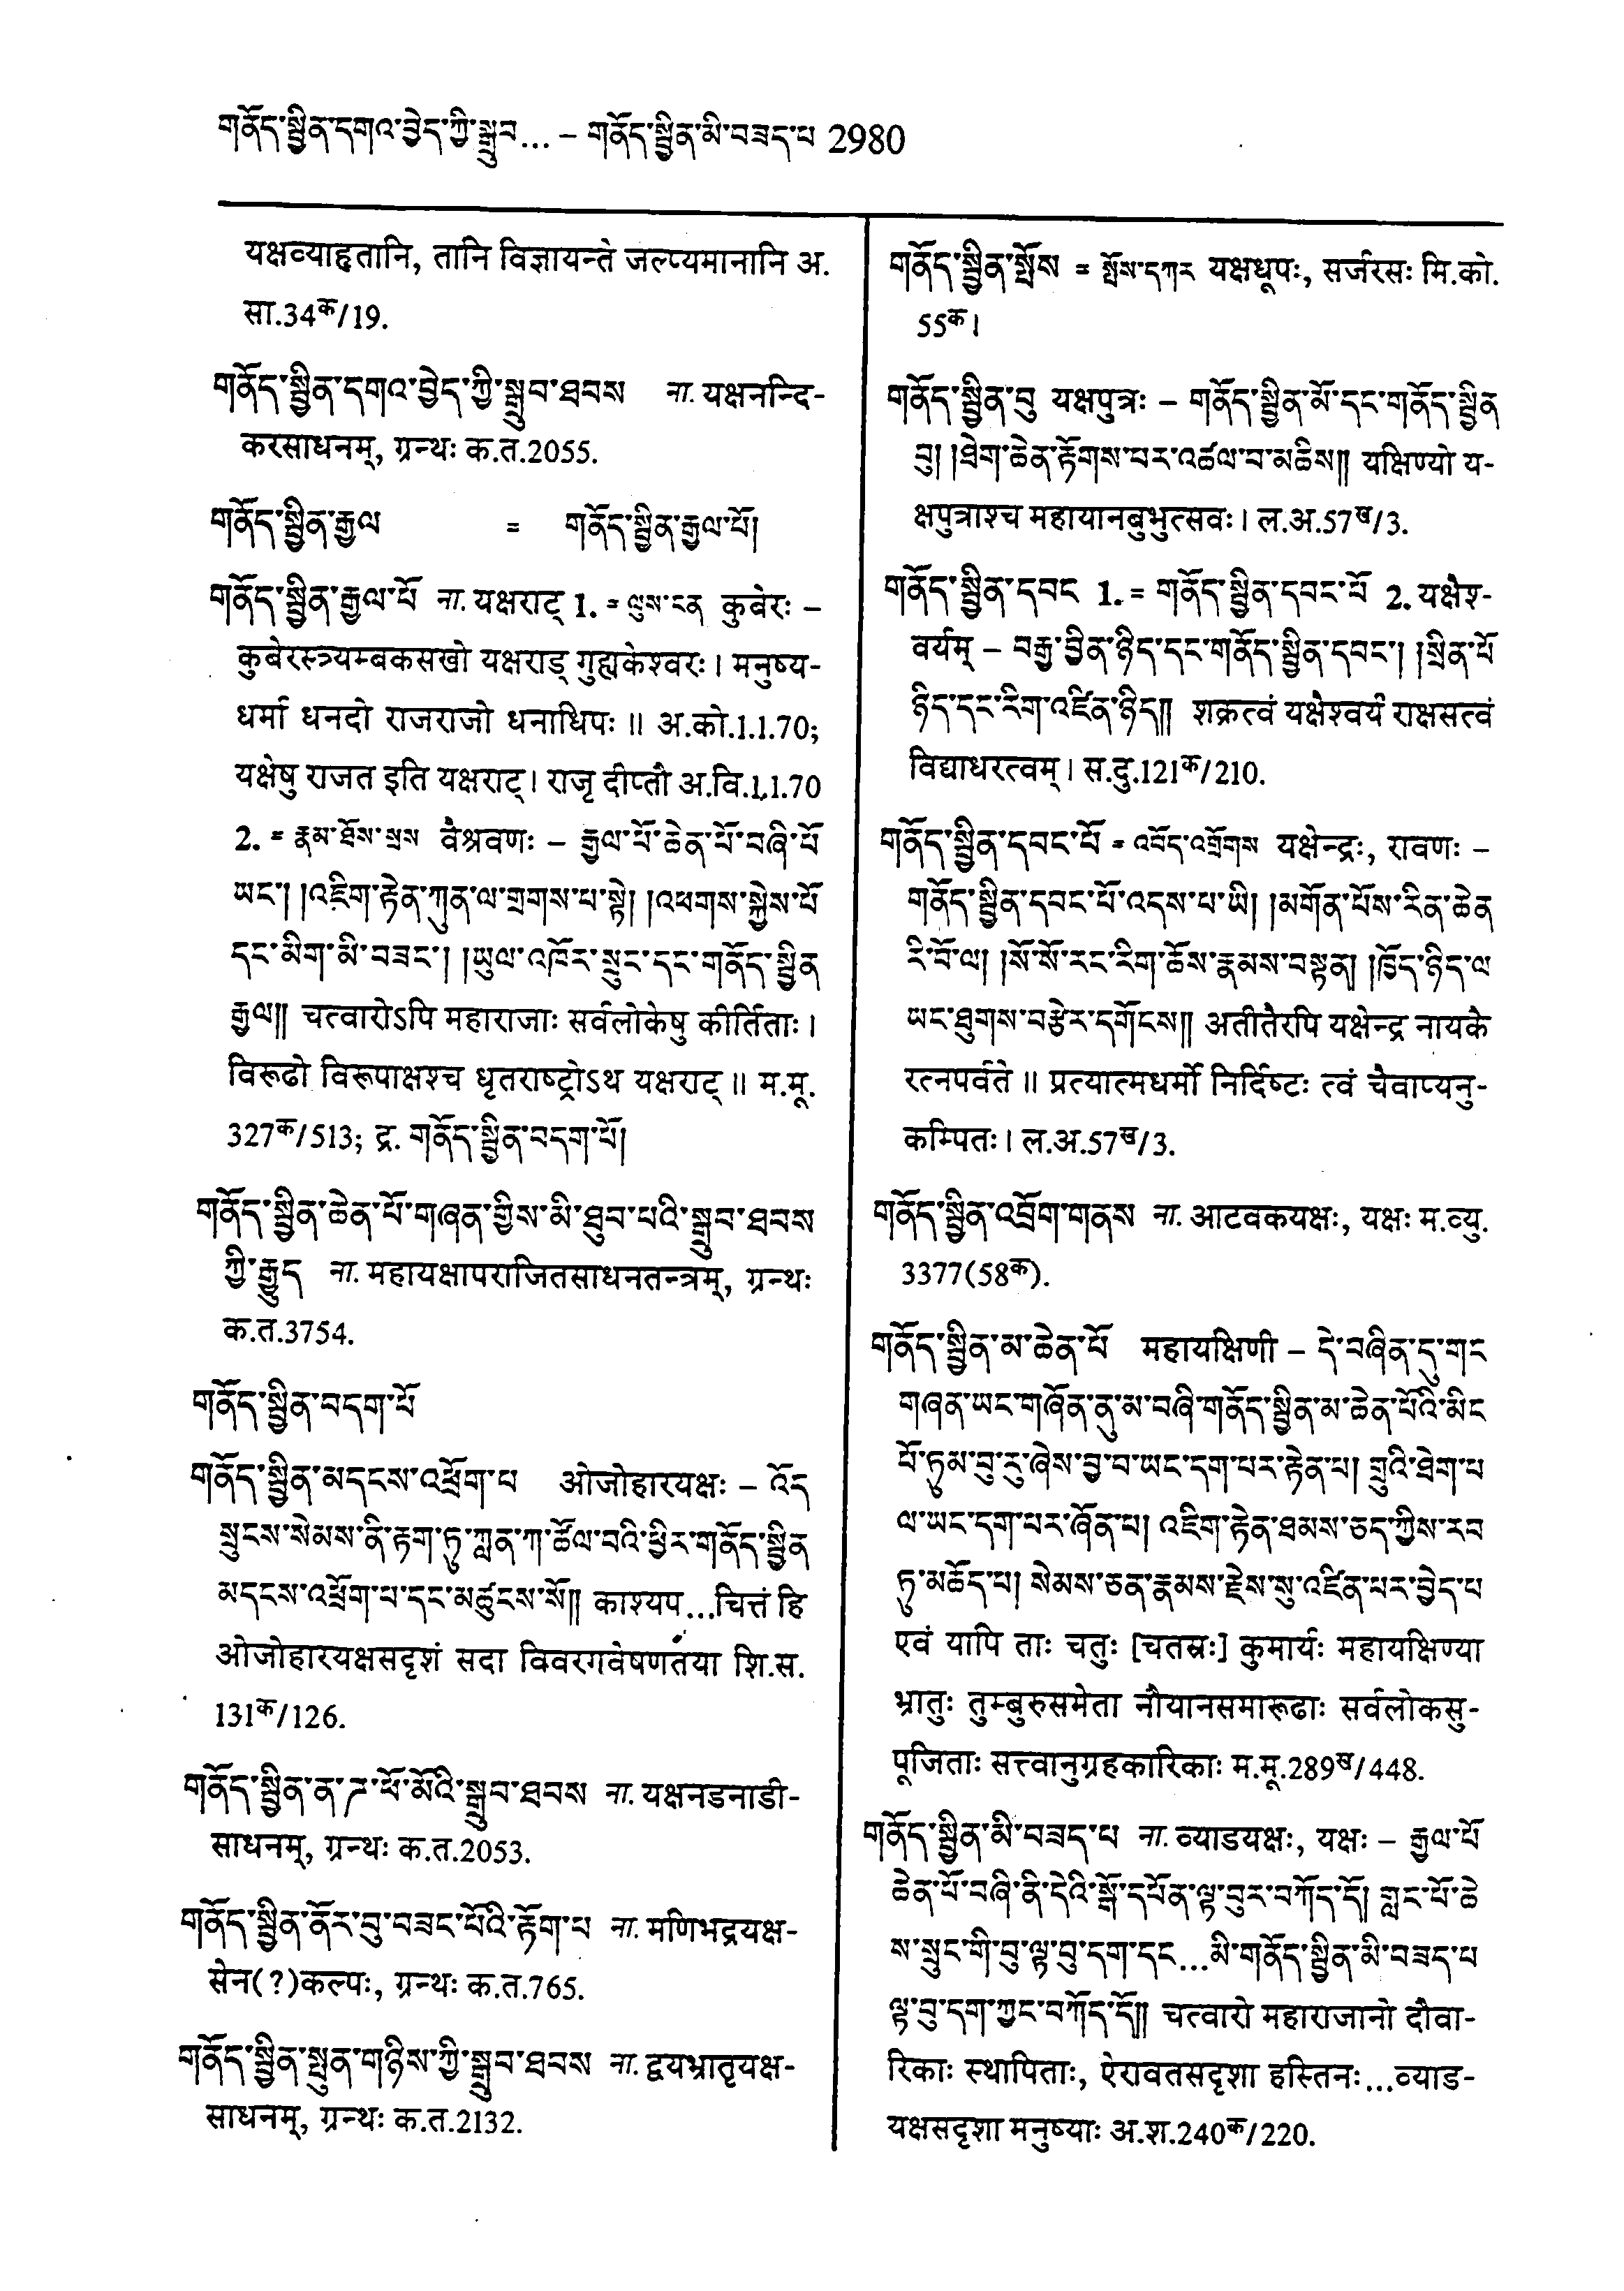 གནོད་སྦྱིན་དགའ་བྱེད་ཀྱི་སྒྲུབ... – གནོད་སྦྱིན་མི་བཟད་པ 2980
यक्षव्याहृतानि, तानि विज्ञायन्ते जल्प्यमानानि अ.
सा.34क/19.
གནོད་སྦྱིན་དགའ་བྱེད་ཀྱི་སྒྲུབ་ཐབས ना. यक्षनन्दि-
करसाधनम्, ग्रन्थः क.त.2055.
གནོད་སྦྱིན་རྒྱལ = གནོད་སྦྱིན་རྒྱལ་པོ།
གནོད་སྦྱིན་རྒྱལ་པོ ना. यक्षराट् 1. = ལུས་ངན कुबेरः –
कुबेरस्त्र्यम्बकसखो यक्षराड् गुह्यकेश्वरः। मनुष्य-
धर्मा धनदो राजराजो धनाधिपः॥ अ.को.1.1.70;
यक्षेषु राजत इति यक्षराट्। राजृ दीप्तौ अ.वि.1.1.70
2. = རྣམ་ཐོས་སྲས वैश्रवणः – རྒྱལ་པོ་ཆེན་པོ་བཞི་པོ
ཡང་། །འཇིག་རྟེན་ཀུན་ལ་གྲགས་པ་སྟེ། །འཕགས་སྐྱེས་པོ
དང་མིག་མི་བཟང་། །ཡུལ་འཁོར་སྲུང་དང་གནོད་སྦྱིན
རྒྱལ༎ चत्वारोऽपि महाराजाः सर्वलोकेषु कीर्तिताः।
विरूढो विरूपाक्षश्च धृतराष्ट्रोऽथ यक्षराट्॥ म.मू.
327क/513; द्र. གནོད་སྦྱིན་བདག་པོ།
གནོད་སྦྱིན་ཆེན་པོ་གཞན་གྱིས་མི་ཐུབ་པའི་སྒྲུབ་ཐབས
ཀྱི་རྒྱུད ना. महायक्षापराजितसाधनतन्त्रम्, ग्रन्थः
क.त.3754.
གནོད་སྦྱིན་བདག་པོ
གནོད་སྦྱིན་མདངས་འཕྲོག་པ ओजोहारयक्षः – འོད
སྲུངས་སེམས་ནི་རྟག་ཏུ་གླན་ཀ་ཚོལ་བའི་ཕྱིར་གནོད་སྦྱིན
མདངས་འཕྲོག་པ་དང་མཚུངས་སོ༎ काश्यप...चित्तं हि
ओजोहारयक्षसदृशं सदा विवरगवेषणतया शि.स.
131क/126.
གནོད་སྦྱིན་ན་ཊ་ཕོ་མོའི་སྒྲུབ་ཐབས ना. यक्षनडनाडी-
साधनम्, ग्रन्थः क.त.2053.
གནོད་སྦྱིན་ནོར་བུ་བཟང་པོའི་རྟོག་པ ना. मणिभद्रयक्ष-
सेन(?)कल्पः, ग्रन्थः क.त.765.
གནོད་སྦྱིན་སྤུན་གཉིས་ཀྱི་སྒྲུབ་ཐབས ना. द्वयभ्रातृयक्ष-
साधनम्, ग्रन्थः क.त.2132.
གནོད་སྦྱིན་སྤོས = སྤོས་དཀར यक्षधूपः, सर्जरसः मि.को.
55क।
གནོད་སྦྱིན་བུ यक्षपुत्रः – གནོད་སྦྱིན་མོ་དང་གནོད་སྦྱིན
བུ། །ཐེག་ཆེན་རྟོགས་པར་འཚལ་བ་མཆིས༎ यक्षिण्यो य-
क्षपुत्राश्च महायानबुभुत्सवः। ल.अ.57ख/3.
གནོད་སྦྱིན་དབང 1. = གནོད་སྦྱིན་དབང་པོ 2. यक्षैश्-
वर्यम् – བརྒྱ་བྱིན་ཉིད་དང་གནོད་སྦྱིན་དབང་། །སྲིན་པོ
ཉིད་དང་རིག་འཛིན་ཉིད༎ शक्रत्वं यक्षैश्वर्यं राक्षसत्वं
विद्याधरत्वम्। स.दु.121क/210.
གནོད་སྦྱིན་དབང་པོ = འབོད་འགྲོགས यक्षेन्द्रः, रावणः –
གནོད་སྦྱིན་དབང་པོ་འདས་པ་ཡི། །མགོན་པོས་རིན་ཆེན
རི་བོ་ལ། །སོ་སོ་རང་རིག་ཆོས་རྣམས་བསྟན། །ཁྱོད་ཉིད་ལ
ཡང་ཐུགས་བརྩེར་དགོངས༎ अतीतैरपि यक्षेन्द्र नायकै
रत्नपर्वते॥ प्रत्यात्मधर्मो निर्दिष्टः त्वं चैवाप्यनु-
कम्पितः। ल.अ.57ख/3.
གནོད་སྦྱིན་འབྲོག་གནས ना. आटवकयक्षः, यक्षः म.व्यु.
3377(58क).
གནོད་སྦྱིན་མ་ཆེན་པོ महायक्षिणी – དེ་བཞིན་དུ་གང
གཞན་ཡང་གཞོན་ནུ་མ་བཞི་གནོད་སྦྱིན་མ་ཆེན་པོའི་མིང
པོ་ཏུམ་བུ་རུ་ཞེས་བྱ་བ་ཡང་དག་པར་རྟེན་པ། གྲུའི་ཐེག་པ
ལ་ཡང་དག་པར་ཞོན་པ། འཇིག་རྟེན་ཐམས་ཅད་ཀྱིས་རབ
ཏུ་མཆོད་པ། སེམས་ཅན་རྣམས་རྗེས་སུ་འཛིན་པར་བྱེད་པ
एवं यापि ताः चतुः [चतस्रः] कुमार्यः महायक्षिण्या
भ्रातुः तुम्बुरुसमेता नौयानसमारूढाः सर्वलोकसु-
पूजिताः सत्त्वानुग्रहकारिकाः म.मू.289ख/448.
གནོད་སྦྱིན་མི་བཟད་པ ना. व्याडयक्षः, यक्षः – རྒྱལ་པོ
ཆེན་པོ་བཞི་ནི་དེའི་སྒོ་དཔོན་ལྟ་བུར་བཀོད་དོ། གླང་པོ་ཆེ
ས་སྲུང་གི་བུ་ལྟ་བུ་དག་དང...མི་གནོད་སྦྱིན་མི་བཟད་པ
ལྟ་བུ་དག་ཀྱང་བཀོད་དོ༎ चत्वारो महाराजानो दौवा-
रिकाः स्थापिताः, ऐरावतसदृशा हस्तिनः...व्याड-
यक्षसदृशा मनुष्याः अ.श.240क/220.